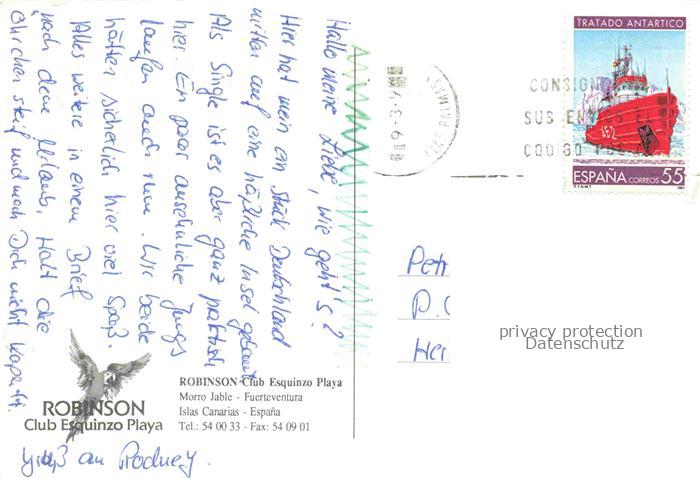 Hallo meine Liebe, wie geht's?
Hier hat man ein Stück Deutschland
mitten auf eine häßliche Insel gebaut.
Als Single ist es aber ganz praktisch
hier. Ein paar ansehnliche Jungs
laufen auch rum. Wir beide
hätten sicherlich hier viel Spaß.
Alles weitere in einem Brief
nach dem Urlaub. Halt die
Öhrchen steif und mach Dich nicht kaputt.
Gruß an Rodney.
ROBINSON
Club Esquinzo Playa
ROBINSON Club Esquinzo Playa
Morro Jable - Fuerteventura
Islas Canarias - España
Tel.: 54 00 33 - Fax: 54 09 01
CONSIGN
SUS EN
CODIGO POS
TRATADO ANTARTICO
ESPAÑA CORREOS 55
Petr
P.
Hei
privacy protection
Datenschutz